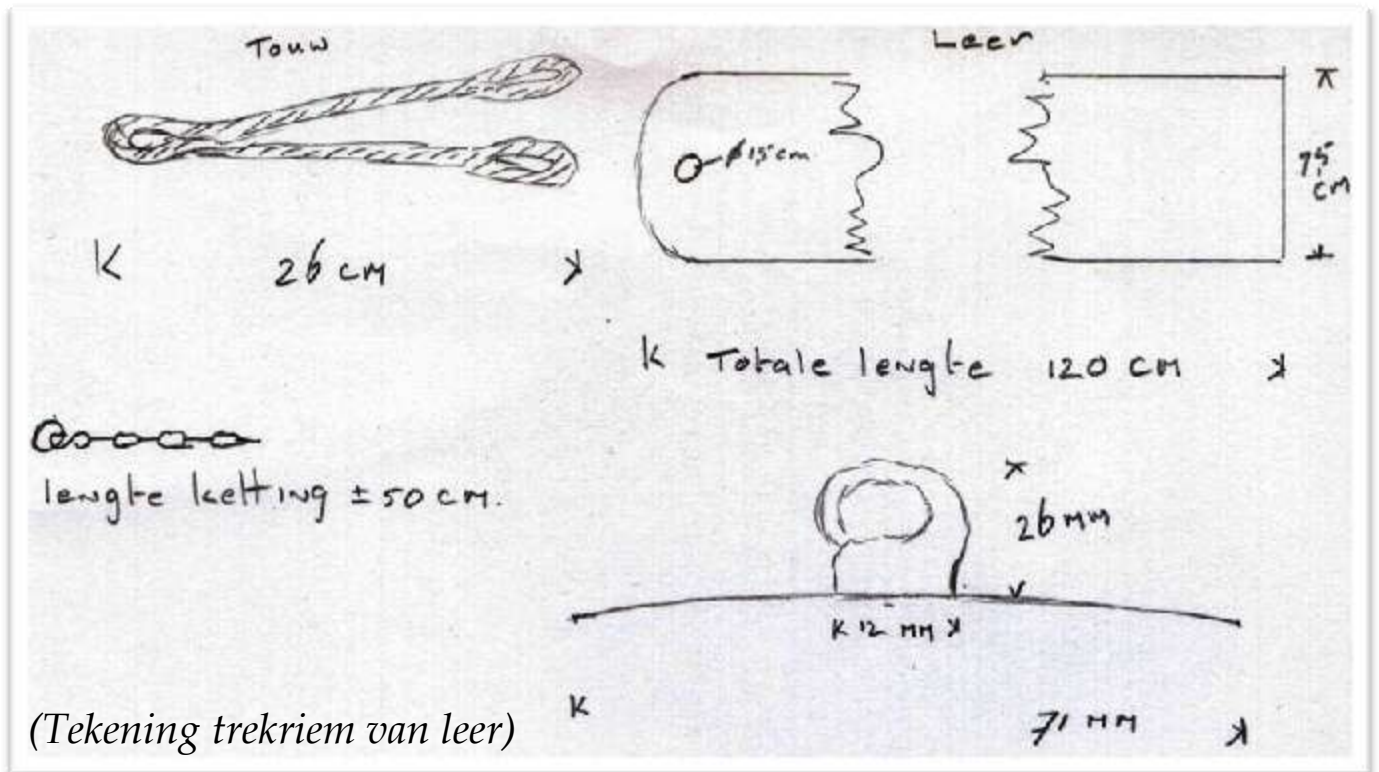 Touw
Leer
ø 15 cm
7,5
cm
26 cm
Totale lengte 120 cm
lengte ketting ± 50 cm.
26 mm
12 mm
71 mm
(Tekening trekriem van leer)